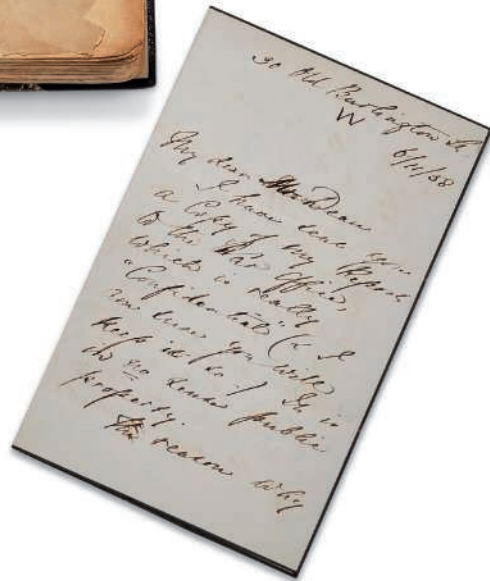 30 Old Burlington St.
W
6/11/58
My dear Mr Dean
I have sent you
a Copy of my Report
to the War Office,
which is really
"Confidential" (& I
am sure you will
keep it so.) It is
in no sense public
property.
The reason why